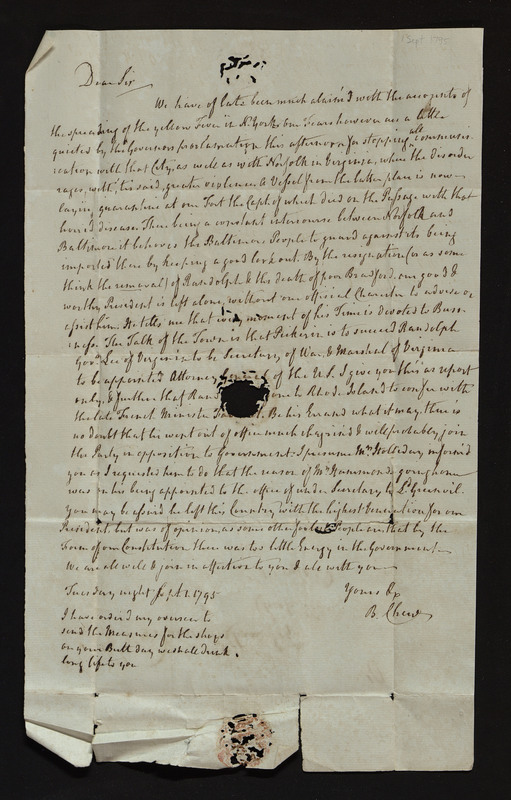 Sept. 1795
Dear Sir
We have of late been much alarm'd with the accounts of
the spreading of the yellow Fever in N. York, our Fears however are a little
quieted by the Governors proclamation this afternoon for stopping all communi-
cation with that City, as well as with Norfolk in Virginia, where the Disorder
rages, with, tis said, greater violence. A Vessel from the latter place is now
laying quarantine at our Fort the Capt. of which died on the Passage with that
horrid disease. There being a constant intercourse between Norfolk and
Baltimore it behoves the Baltimore People to guard against its being
imported there by keeping a good look out. By the resignation (or as some
think the removal) of Randolph & the death of poor Bradford our good &
worthy President is left alone, without one official Character to advise or
assist him. He tells me that every moment of his Time is devoted to Busi-
ness. The Talk of the Town is that Pickerin is to succeed Randolph
Govr. Lee of Virginia to be Secretary of War, & Marshal of Virginia
to be appointed Attorney of the U.S. I give you this as report
only, & further that Ran gone to Rhod. Island to confer with
the late French Minister Be his Errand what it may, there is
no doubt that he went out of office much chagrin'd & will probably join
the Party in opposition to Government. I presume Mr. Holliday inform'd
you as I requested him to do that the reason of Mr. Hammonds going home
was on his being appointed to the office of under Secretary to Ld. Grenvil.
You may be assur'd he left this Country with the highest Veneration for our
President, but was of opinion as some other People are that by the
Form of our Constitution there was too little Energy in the Government.
We are all well & join in affection to you & all with you
Tuesday night Sept. 1. 1795
Yours &c
B. Chew
I have order'd my overseer to
send the Measures for the shoes
on your Birth day we shall drink
long life to you